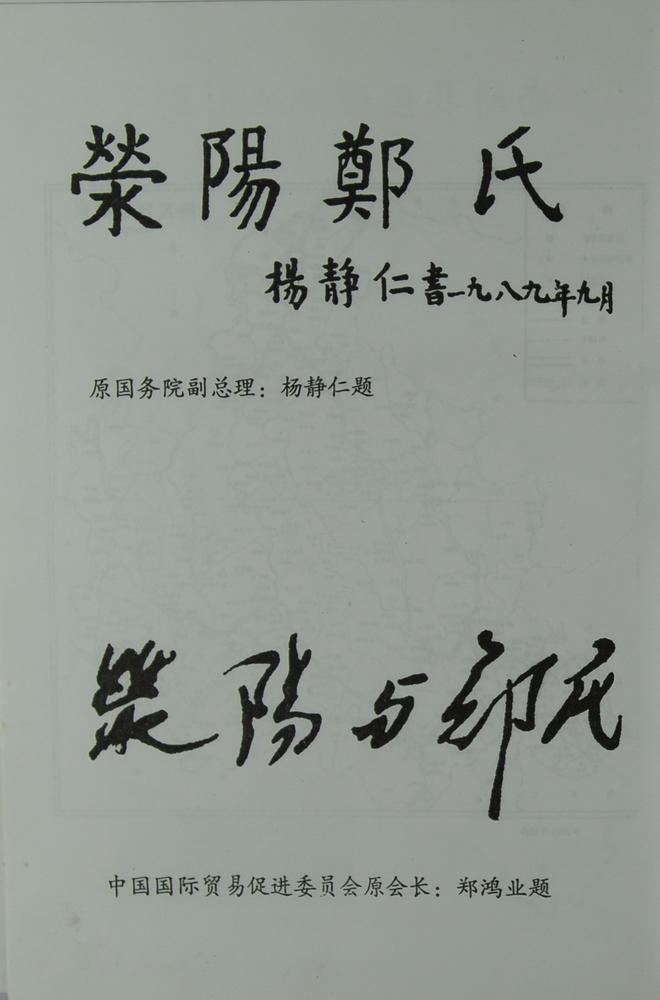 滎陽鄭氏
楊靜仁書一九八九年九月
原国务院副总理：杨静仁题
滎陽与郑氏
中国国际贸易促进委员会原会长：郑鸿业题